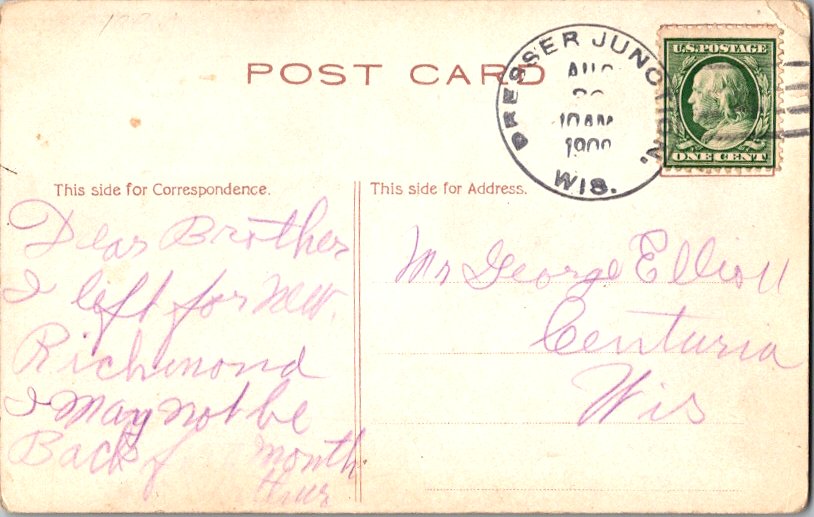 POST CARD
DRESSER JUNCTION.
AUG
10 AM
WIS.
U.S. POSTAGE
ONE CENT
This side for Correspondence.
This side for Address.
Dear Brother
I left for New.
Richmond
I may not be
Back month
Mr George Elliott
Centuria
Wis